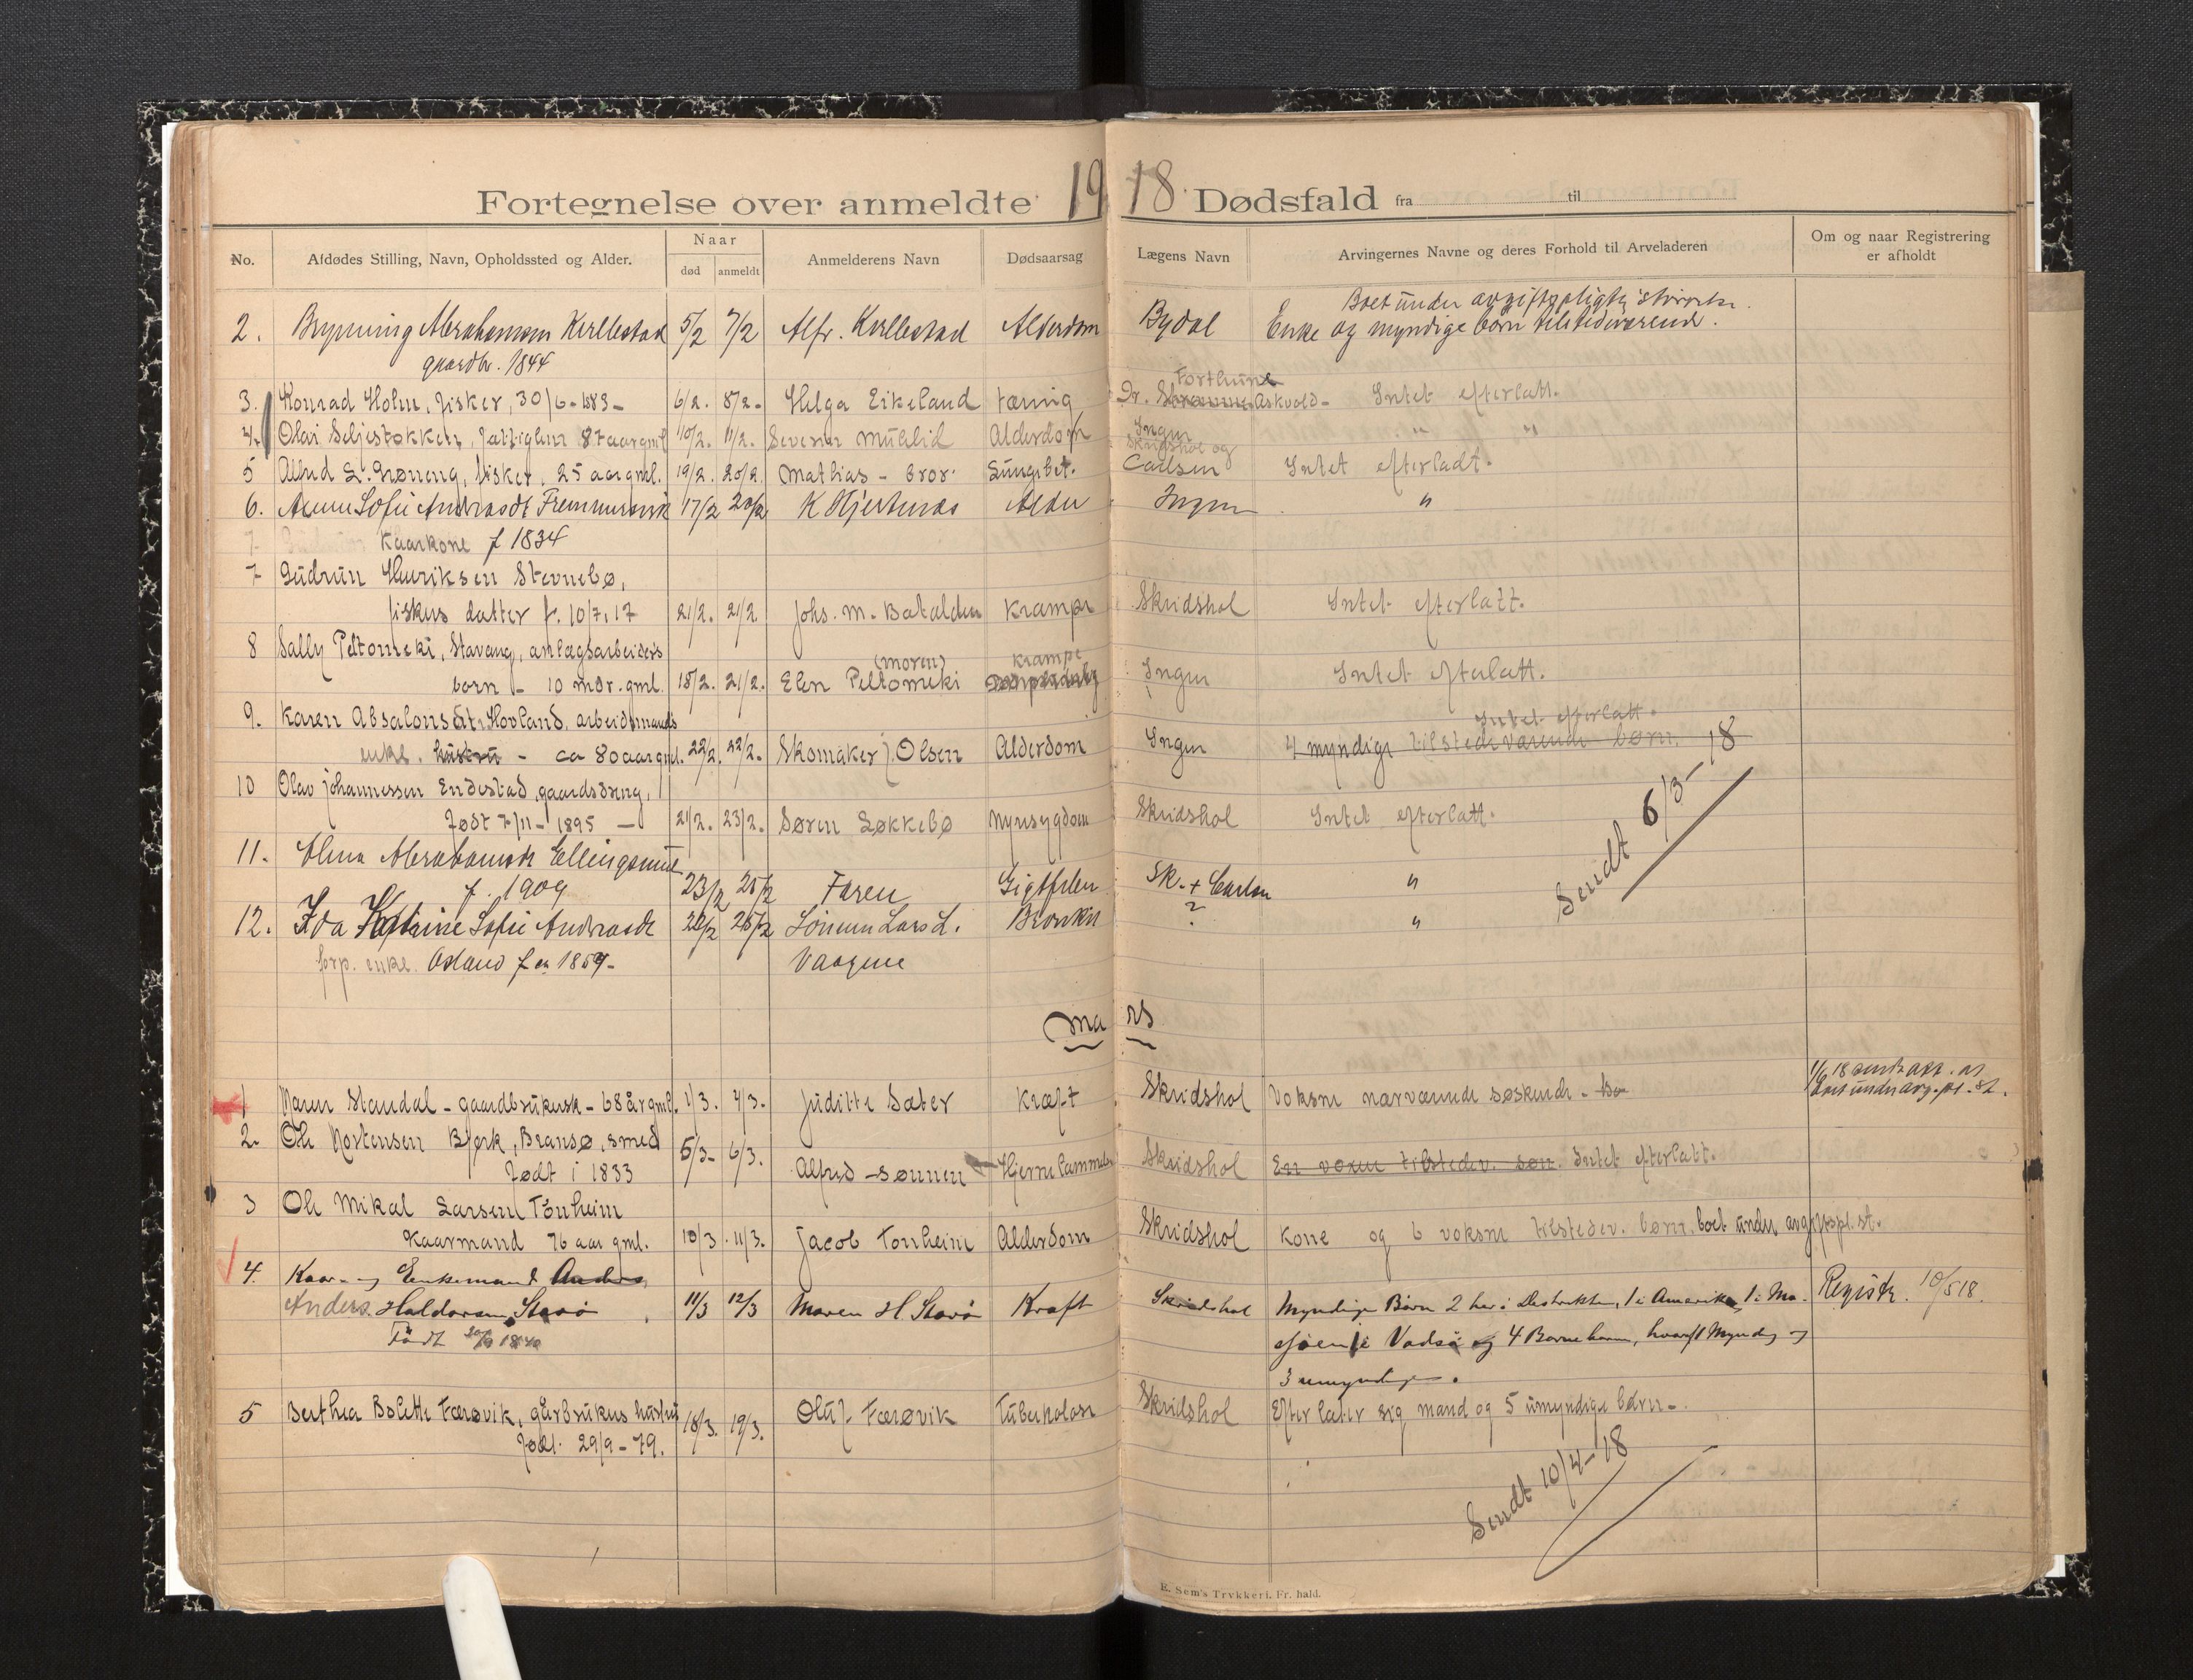 Fortegnelse over anmeldte 1918 Dødsfald fra til
No. Afdødes Stilling, Navn, Opholdssted og Alder. Naar død anmeldt Anmelderens Navn Dødsaarsag Lægens Navn Arvingernes Navne og deres Forhold til Arveladeren Om og naar Registrering er afholdt
Boet under avgiftspligtig størrelse.
2. Brynning Abrahamsen Kvellestad 5/2 7/2 Alfr. Kvellestad Alderdom Bydal Enke og myndige børn tilstedeværende.
gaardbr. 1844
Forthun
3. Konrad Holm, fisker, 30/6-1883- 6/2. 8/2- Helga Eikeland tæring Dr. Askvold- Intet efterlatt.
4. Olai Seljestokken, fattiglem 87 aar gml 10/2. 11/2. Severin Alderdom Ingen " "
Skridshol og
5 Alfred L. Grøneng, fisker, 25 aar gml. 19/2. 20/2. Mathias - bror. Lungebet. Carlsen Intet efterladt.
6. Sofie Andrasdt 17/2 20/2 K Hjertenæs Alder Ingen "
7 Kaarkone f 1834
7 Gudrun Henriksen Stevnebø,
fiskers datter f. 10/7.17 21/2. 21/2 Johs. M. Batalden Krampe Skridshol Intet efterlatt.
8 Sally Peltomeki, Stavang, anlægsarbeiders
(moren) Krampe
barn - 10 mdr. gml. 18/2. 21/2. Elen Peltomeki Ingen Intet efterlatt.
9. Karen Absalonsdtr. Hovland, arbeidsmands
Intet efterlatt.
enke. hustru - ca 80 aar gml. 22/2. 22/2. Skomaker J. Olsen Alderdom Ingen 4 myndige tilstedeværende børn.
10 Olav Johannessen Endestad, gaardsdreng,
Født 7/11-1895 - 21/2. 23/2. Søren Løkkebø Nyresygdom Skridshol Intet efterlatt.
Sendt 6/3-18
11. Abrahamsdt
f. 1909 23/2 25/2 Faren Gigtfeber Sk. + Carlsen "
12. Ida Katrine Sofie Andrasdt 22/2 25/2 Sønnen Lars L. Bronkit ? "
forp. enke. Osland f ca 1859- Vaagene
Mars
1 Maren Standal - gaardbrukersk - 68 år gml. 1/3. 4/3. Juditte Sæter Kræft Skridshol Voksne nærværende søskende. Bo 1/6 18 boet under avg. pl. st.
2. Ole Mortensen Bjørk, Bransø, smed
Født i 1833 5/3- 6/3. Alfred - sønnen Hjernelammelse Skridshol En voxen tilstedev. søn. Intet efterlatt.
3 Ole Mikal Larsen Tonheim
Kaarmand 76 aar gml. 10/3. 11/3. Jacob Tonheim Alderdom Skridshol Kone og 6 voksne tilstedev. børn. boet under avgiftspl. st.
4. Kaar- og Enkemand Anders
Anders Haldorsen Starø 11/3 12/3 Maren H Starø Kræft Skridshol Myndige Børn 2 her i Destrikten, 1 i Amerika, 1 i Mo- Registr. 10/5 18.
Født 1840 sjøen, 1 i Vadsø og 4 Barnebarn, hvoraf 1 Myndig og
3 umyndige.
5 Berthea Bolette Færøvik, gårbrukers hustru 18/3. 19/3. Oluf Færøvik Tuberkolose Skridshol Efterlater sig mand og 5 umyndige børn.
Født. 29/9-79.
Sendt 10/4-18
E. Sem's Trykkeri, Fr. hald.